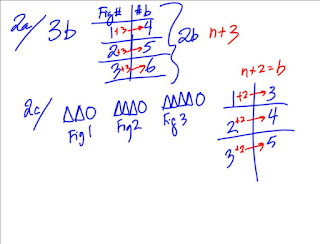 2a/ 3b
Fig# #b
1 +3→ 4
2 +3→ 5
3 +3→ 6
2b n+3
2c/
Fig1 Fig2 Fig3
n+2=b
1 +2→ 3
2 +2→ 4
3 +2→ 5